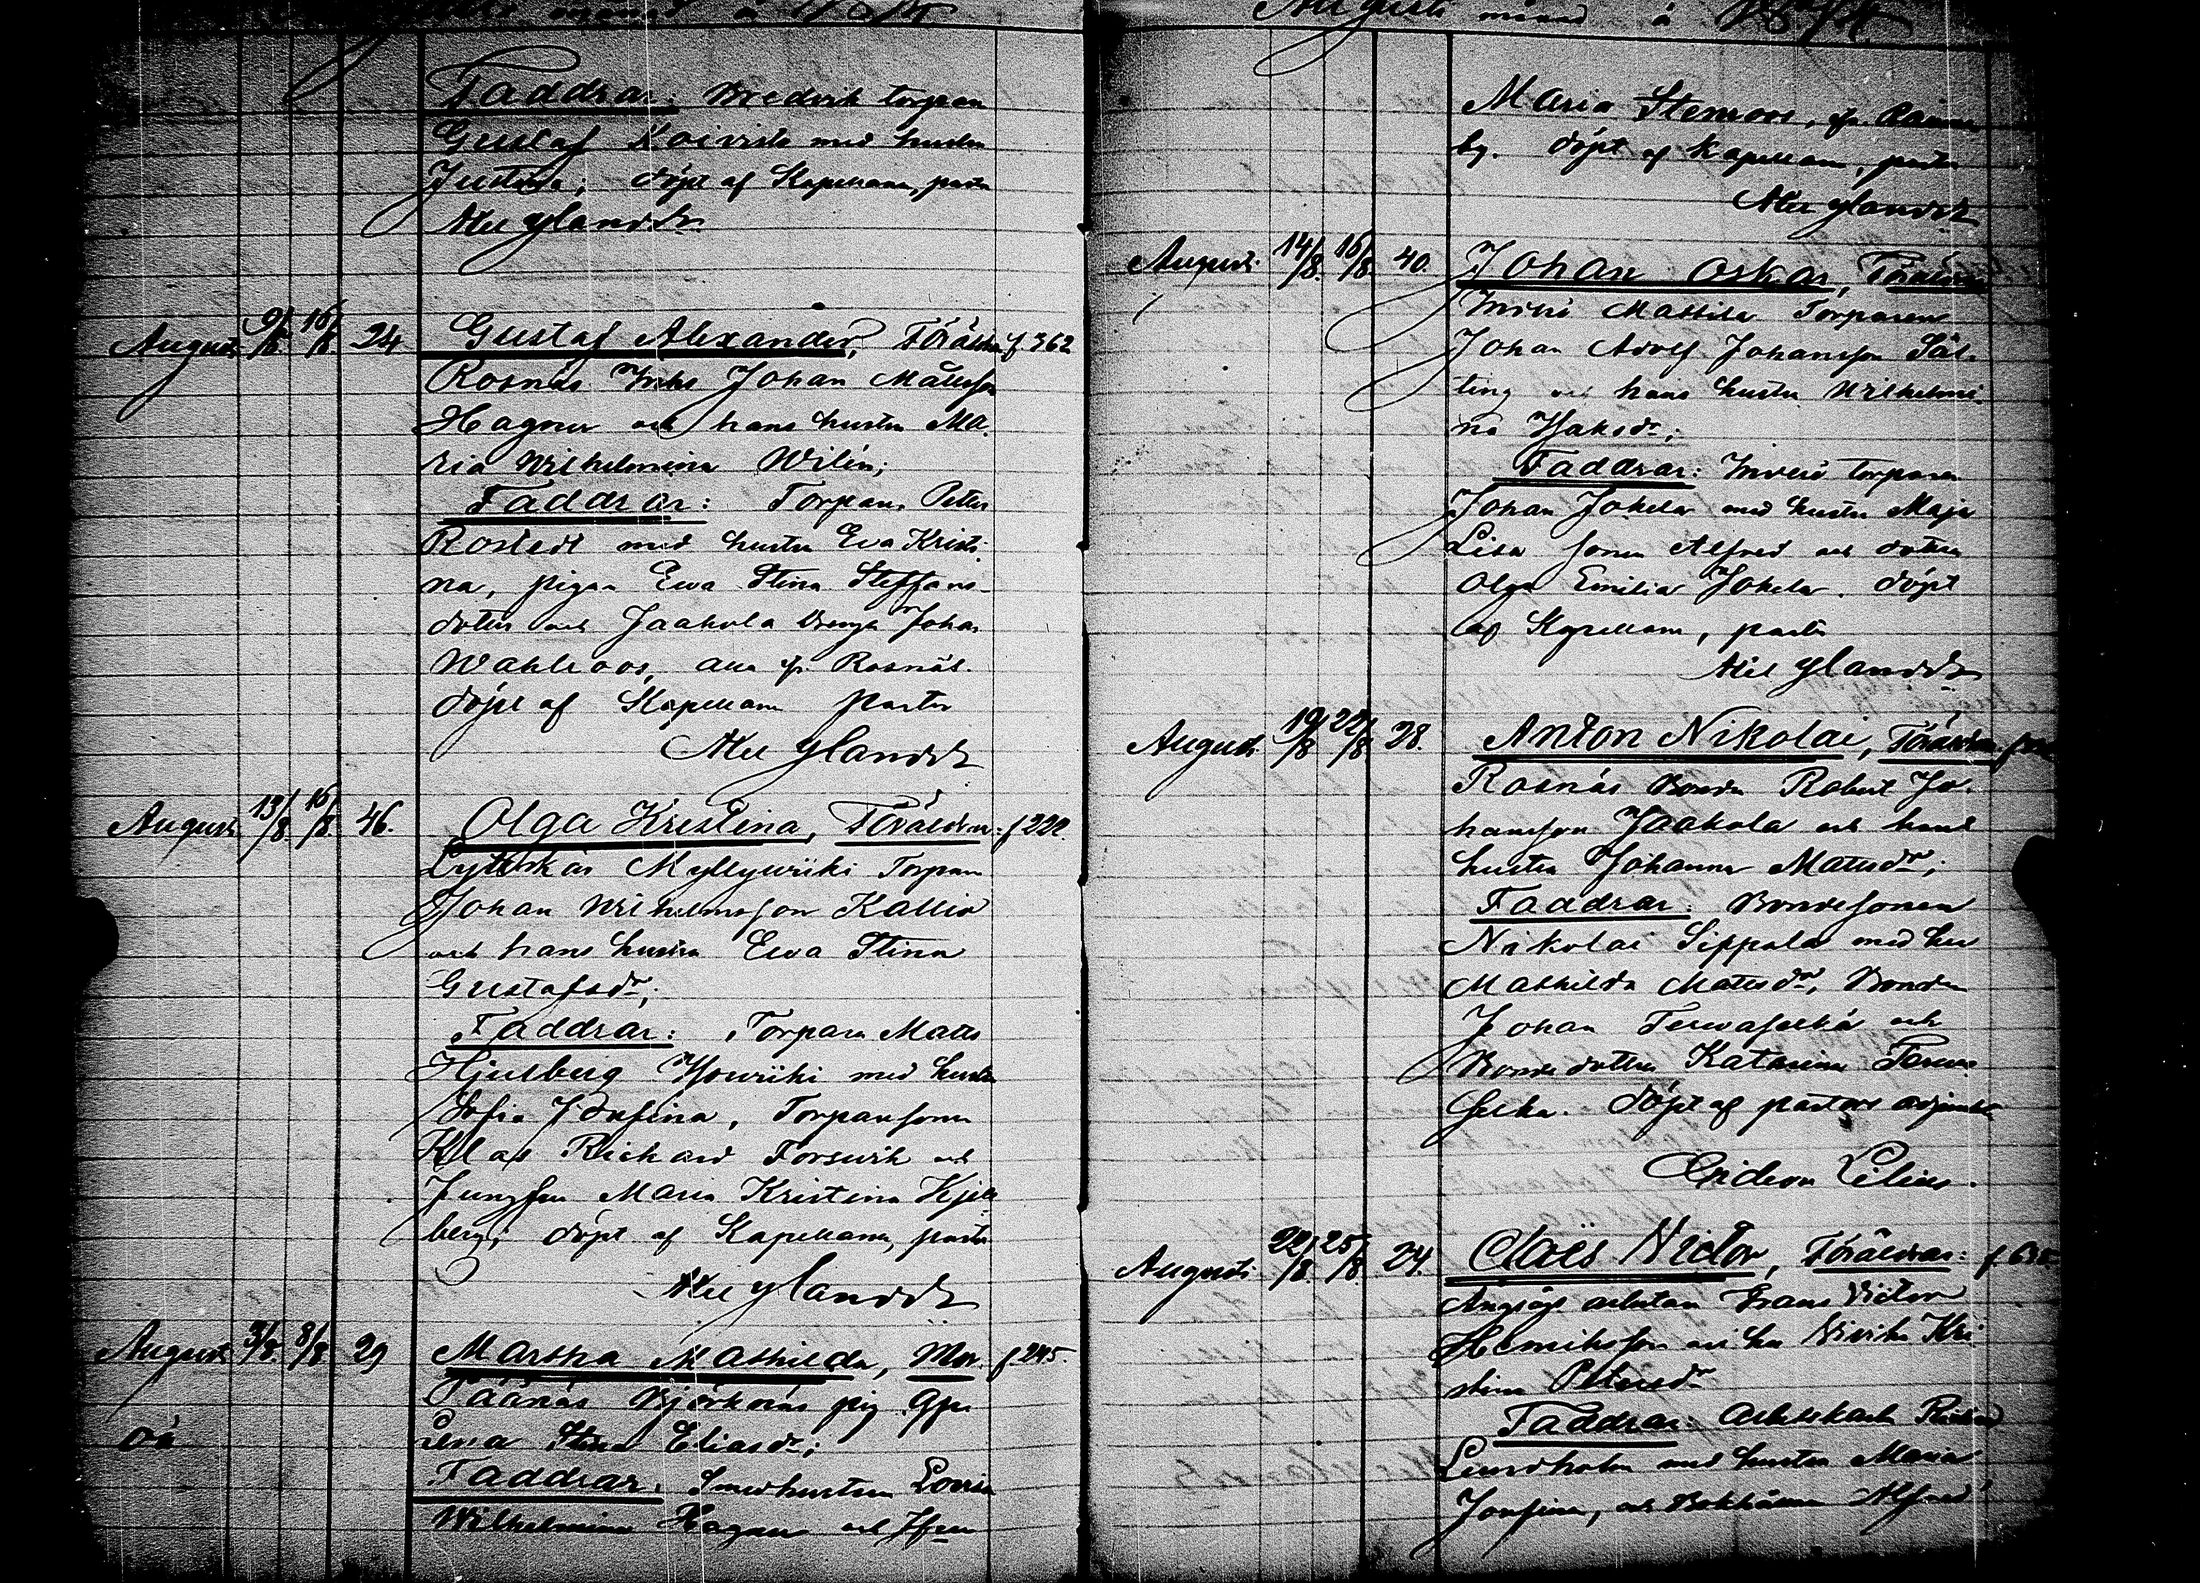 Augusti månad å
Faddrar: Bredvik torparen
Gustaf Koivisto med hustru
Justina; döpt af Kapellanen, pastor
Alex Ylandr
Augusti 9/8. 16/8. 24 Gustaf Alexander, Föräldr. f 362
Rosnäs Inhs Johan Mattsson
Hagner och hans hustru Ma-
ria Wilhelmina Wilén;
Faddrar: Torparen Petter
Rostedt med hustru Eva Kristi-
na, pigan Ewa Stina Steffans-
dotter och Jaakola dreng Johan
Wahlroos, alla fr. Rosnäs.
döpt af Kapellanen pastor
Alex Ylandr
Augusti 13/8. 16/8. 46. Olga Kristina, Föräldrar: f 222.
Myllywiiki Torparen
Johan Wilhelmsson Kallio
och hans hustru Ewa Stina
Gustafsdr;
Faddrar: Torparen Matts
Hjelberg Isowiiki med hustru
Sofia Josefina, Torparsonen
Klas Rickard Forswik och
Jungfru Maria Kristina Hjel-
berg; döpt af Kapellanen, pastor
Alex Ylandr
Augusti 3/8. 8/8. 29 Martha Mathilda, Mor. f 245.
Björknäs pig.
oä Lena Stina Eliasdr;
Faddrar: Smedhustrun Lovisa
Wilhelmina Hagner och
Augusti månad å
Maria Stenroos, fr.
by. döpt af Kapellanen, pastor
Alex Ylandr
Augusti 14/8. 16/8. 40. Johan Oskar, Föräldrar
Inverö Mattila Torparen
Johan Adolf Johansson Säl-
ting och hans hustru Wilhelmi-
na Isaksdr;
Faddrar: Inverö torparen
Johan Jokela med hustru Maja
Lisa sonen Alfred och dottren
Olga Emilia Jokela. döpt
af Kapellanen, pastor
Alex Ylandr
Augusti 19/8. 22/8. 28. Anton Nikolai, Föräldrar
Rosnäs Bonden Robert Jo-
hansson Jaakola och hans
hustru Johanna Matsdr;
Faddrar: Bondesonen
Nikolai Sippola med hus
Mathilda Matsdr, Bonden
Johan Terwaselkä och
Bondedottren Katarina Terwa-
selkä. döpt af pastors adjunkt
Gideon Lilius.
Augusti 22/8. 25/8. 24. Claës Victor, Föräldrar: f.
Ångsågs arbetaren Frans Victor
Henriksson och hu Vivika Kri
stina Petersdr
Faddrar: Arbetskarl
Lundholm med hustru Maria
Josefina, och Alfred